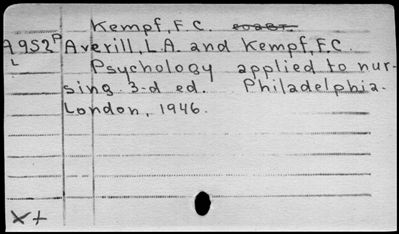 Kempf, F.C. coaut.
A952p Averill, L.A. and Kempf, F.C.
L Psychology applied to nur-
sing. 3-d ed. Philadelphia.
London, 1946.
X+